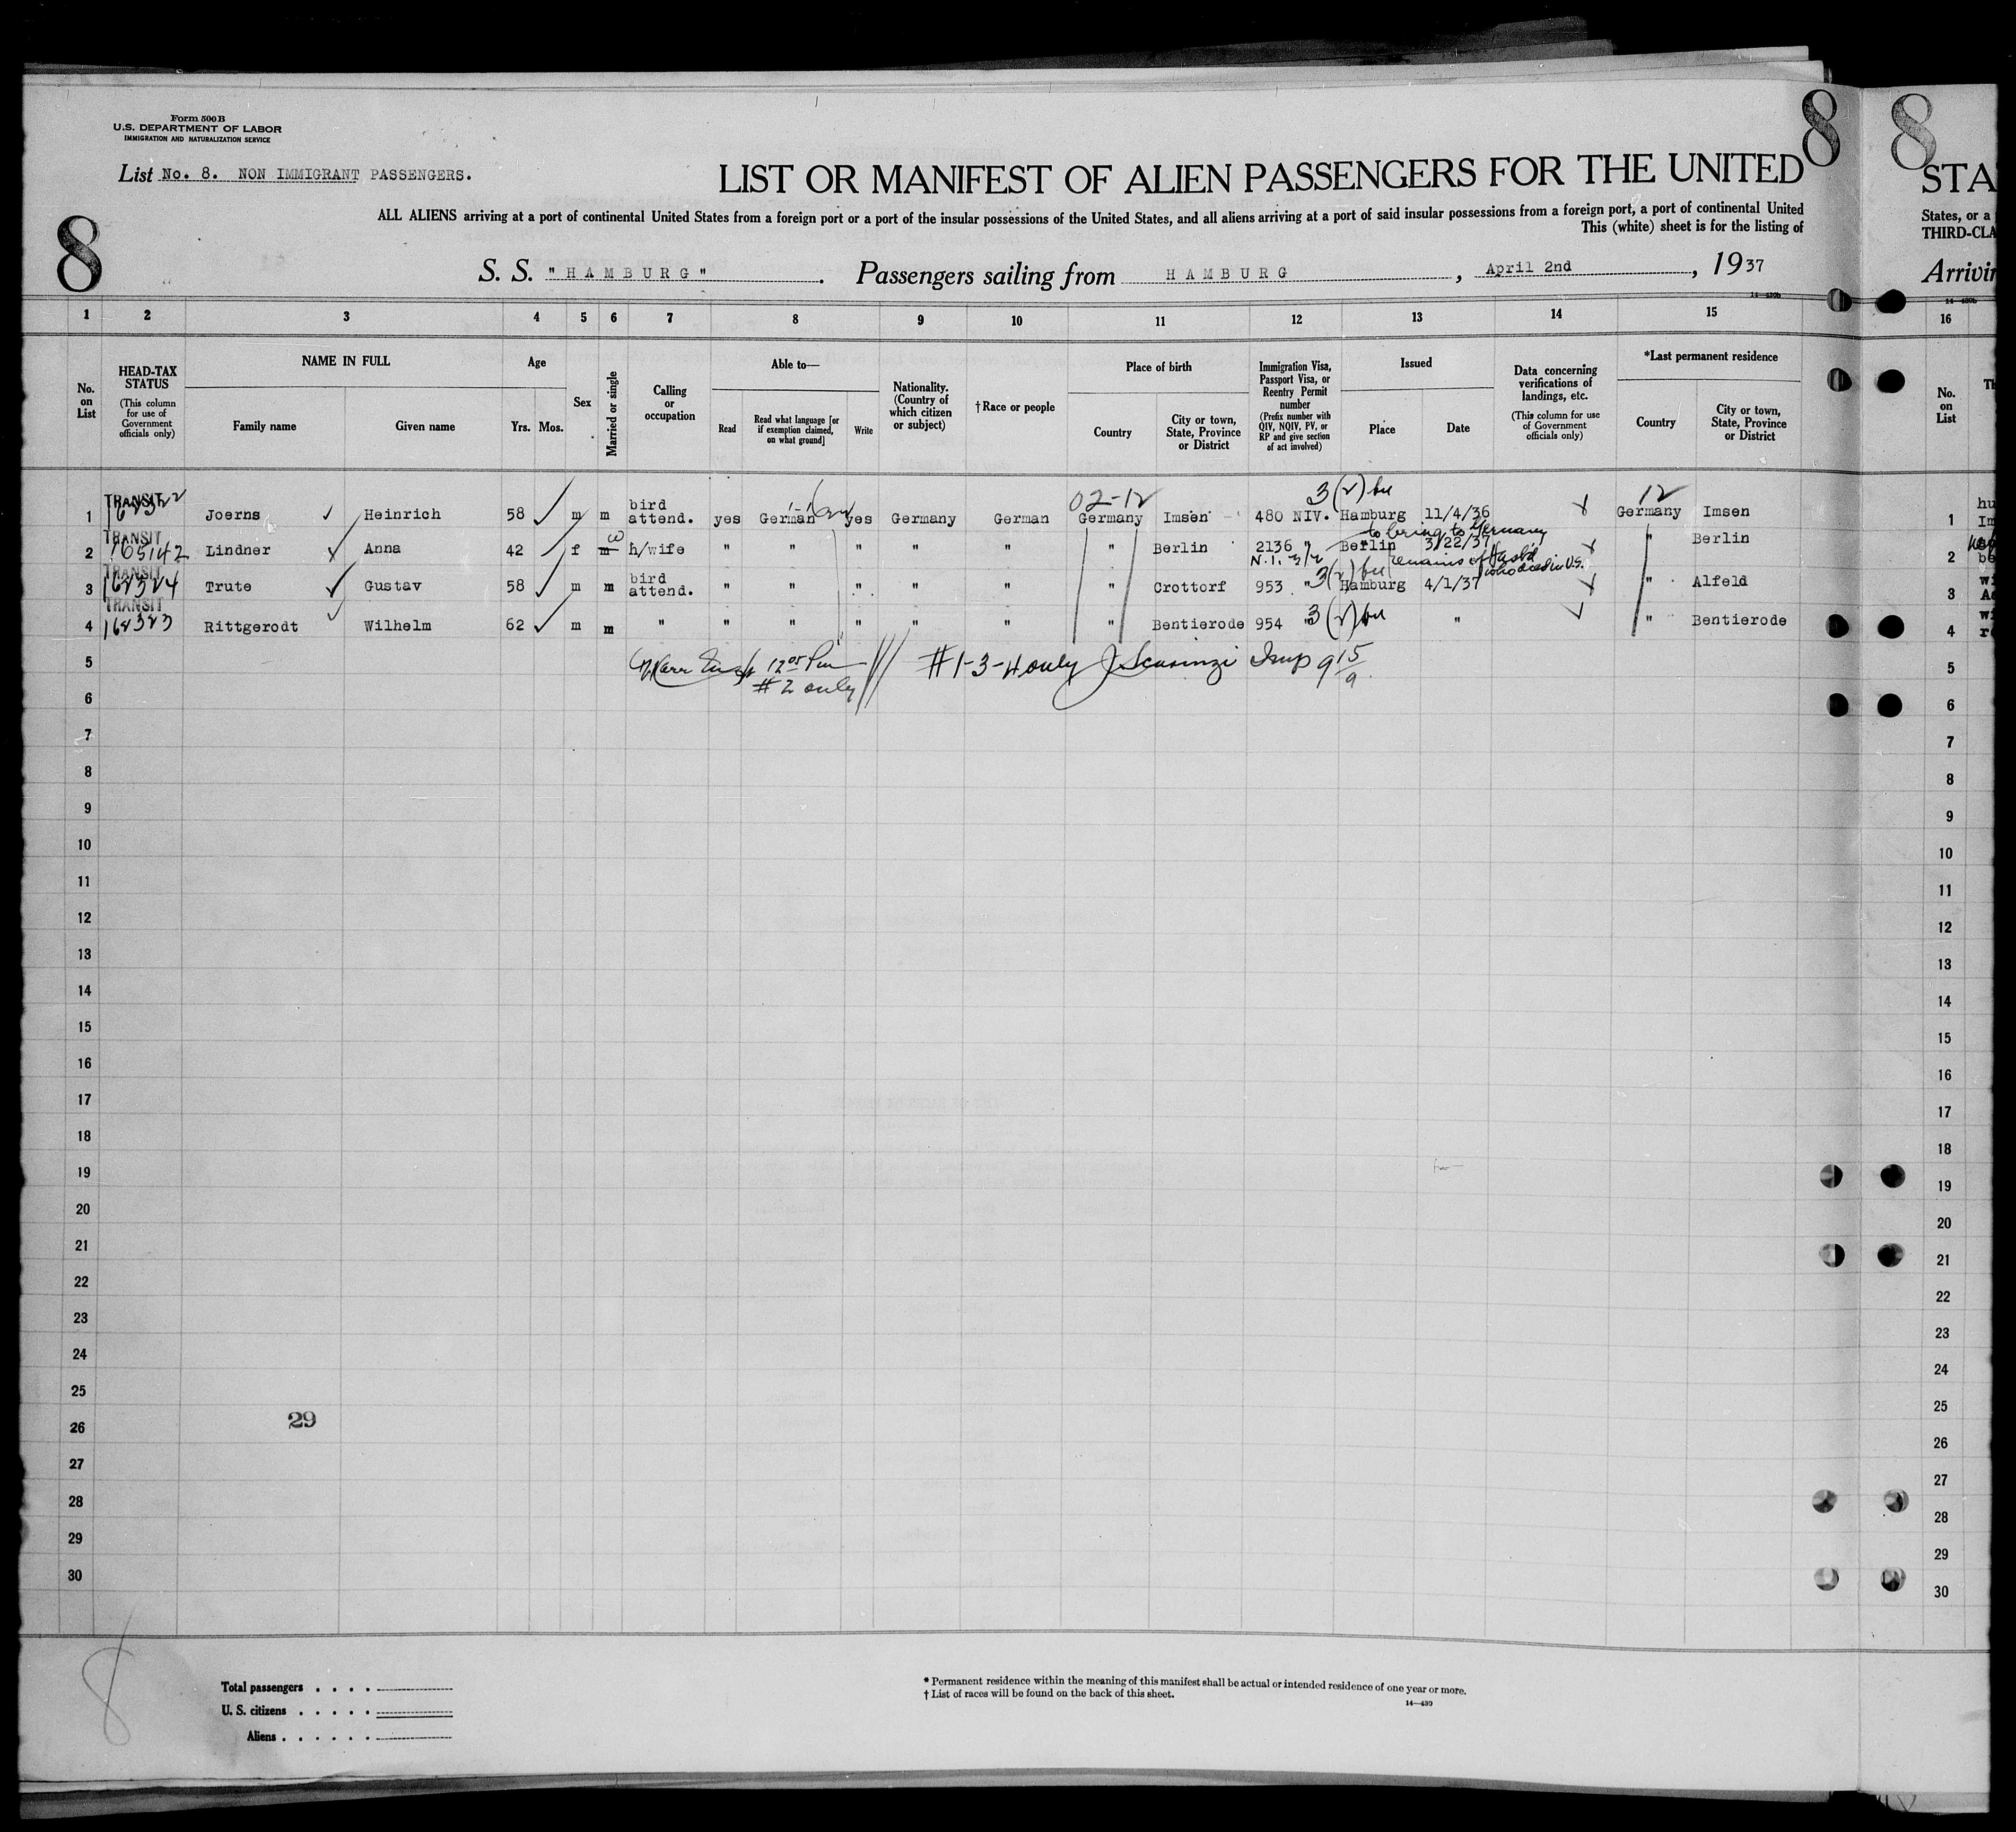 Form 500B
U.S. DEPARTMENT OF LABOR
IMMIGRATION AND NATURALIZATION SERVICE
List No. 8. NON IMMIGRANT PASSENGERS.
8 8 8
LIST OR MANIFEST OF ALIEN PASSENGERS FOR THE UNITED STA
ALL ALIENS arriving at a port of continental United States from a foreign port or a port of the insular possessions of the United States, and all aliens arriving at a port of said insular possessions from a foreign port, a port of continental United States, or a
This (white) sheet is for the listing of THIRD-CLA
S. S. "HAMBURG". Passengers sailing from HAMBURG, April 2nd, 1937 Arrivin
14—430b 14—430b
1 2 3 4 5 6 7 8 9 10 11 12 13 14 15 16
No. on List
HEAD-TAX STATUS
(This column for use of Government officials only)
NAME IN FULL
Family name Given name
Age
Yrs. Mos.
Sex
Married or single
Calling or occupation
Able to—
Read
Read what language [or if exemption claimed, on what ground]
Write
Nationality. (Country of which citizen or subject)
† Race or people
Place of birth
Country
City or town, State, Province or District
Immigration Visa, Passport Visa, or Reentry Permit number
(Prefix number with QIV, NQIV, PV, or RP and give section of act involved)
Issued
Place Date
Data concerning verifications of landings, etc.
(This column for use of Government officials only)
*Last permanent residence
Country
City or town, State, Province or District
No. on List
Th
02-12 3(2) 12
1 TRANSIT Joerns Heinrich 58 m m bird attend. yes German yes Germany German Germany Imsen 480 NIV. Hamburg 11/4/36 Germany Imsen 1
to bring to Germany
2 TRANSIT 165142 Lindner Anna 42 f m w h/wife " " " " " " Berlin 2136 " Berlin 3/22/37 " Berlin 2
N.I. 3/2 remains of husb'd who died in U.S.
3 TRANSIT 162324 Trute Gustav 58 m m bird attend. " " " " " " Crottorf 953 " 3(2) Hamburg 4/1/37 " Alfeld 3
4 TRANSIT 162323 Rittgerodt Wilhelm 62 m m " " " " " " " Bentierode 954 " 3(2) " " Bentierode 4
5 12 05 Pm # 1-3-4 only 9 15 5
# 2 only
6 6
7 7
8 8
9 9
10 10
11 11
12 12
13 13
14 14
15 15
16 16
17 17
18 18
19 19
20 20
21 21
22 22
23 23
24 24
25 25
29
26 26
27 27
28 28
29 29
30 30
8
Total passengers
U. S. citizens
Aliens
* Permanent residence within the meaning of this manifest shall be actual or intended residence of one year or more.
† List of races will be found on the back of this sheet.
14—430